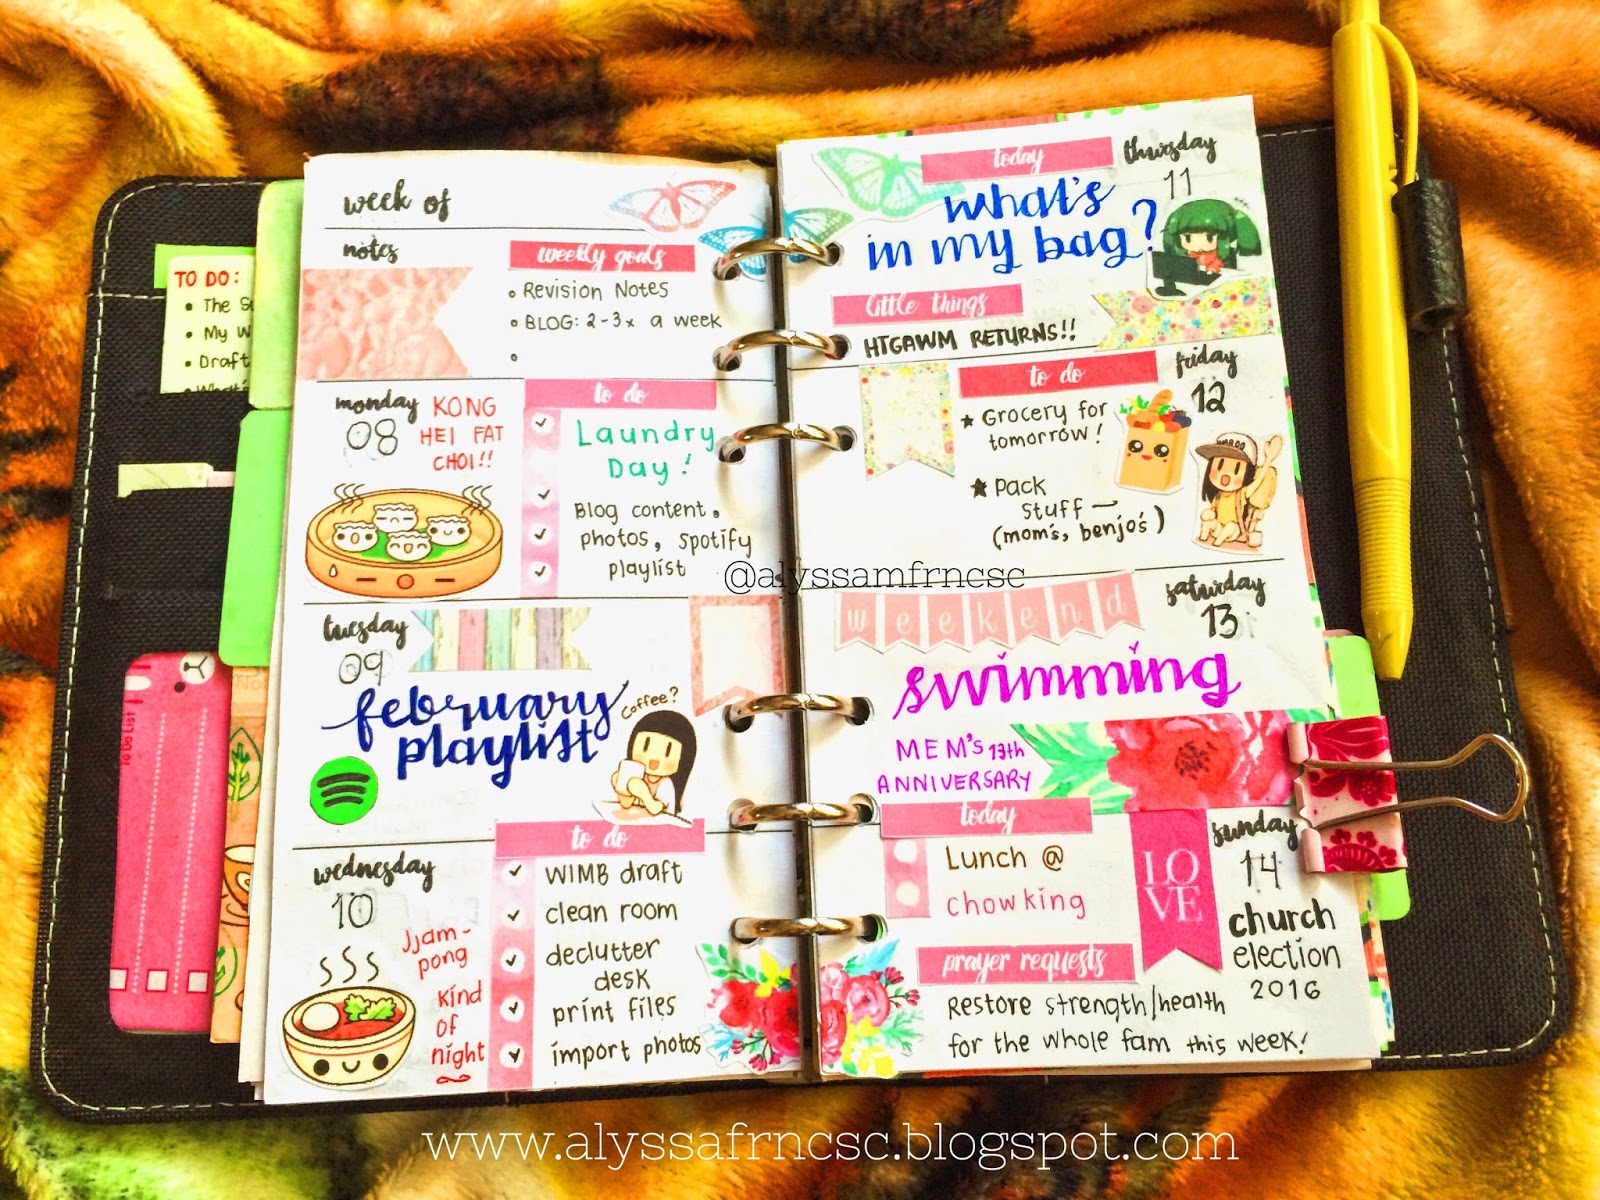 TO DO:
• The
• My W
• Draft
• What's
To Do List
week of
notes
weekly goals
Revision Notes
BLOG: 2-3x a week
monday
08
KONG
HEI FAT
CHOI!!
to do
Laundry
Day!
Blog content,
photos, spotify
playlist
tuesday
09
february
playlist
coffee?
wednesday
10
Jjam-
pong
kind
of
night
to do
WIMB draft
clean room
declutter
desk
print files
import photos
today
thursday
11
what's
in my bag?
little things
HTGAWM RETURNS!!
friday
12
to do
★ Grocery for
tomorrow!
★ Pack
stuff →
(mom's, benjo's)
@alyssamfrncsc
weekend
saturday
13
swimming
MEM's 13th
ANNIVERSARY
today
Lunch @
chowking
LO
VE
sunday
14
church
election
2016
prayer requests
Restore strength/health
for the whole fam this week!
www.alyssafrncsc.blogspot.com